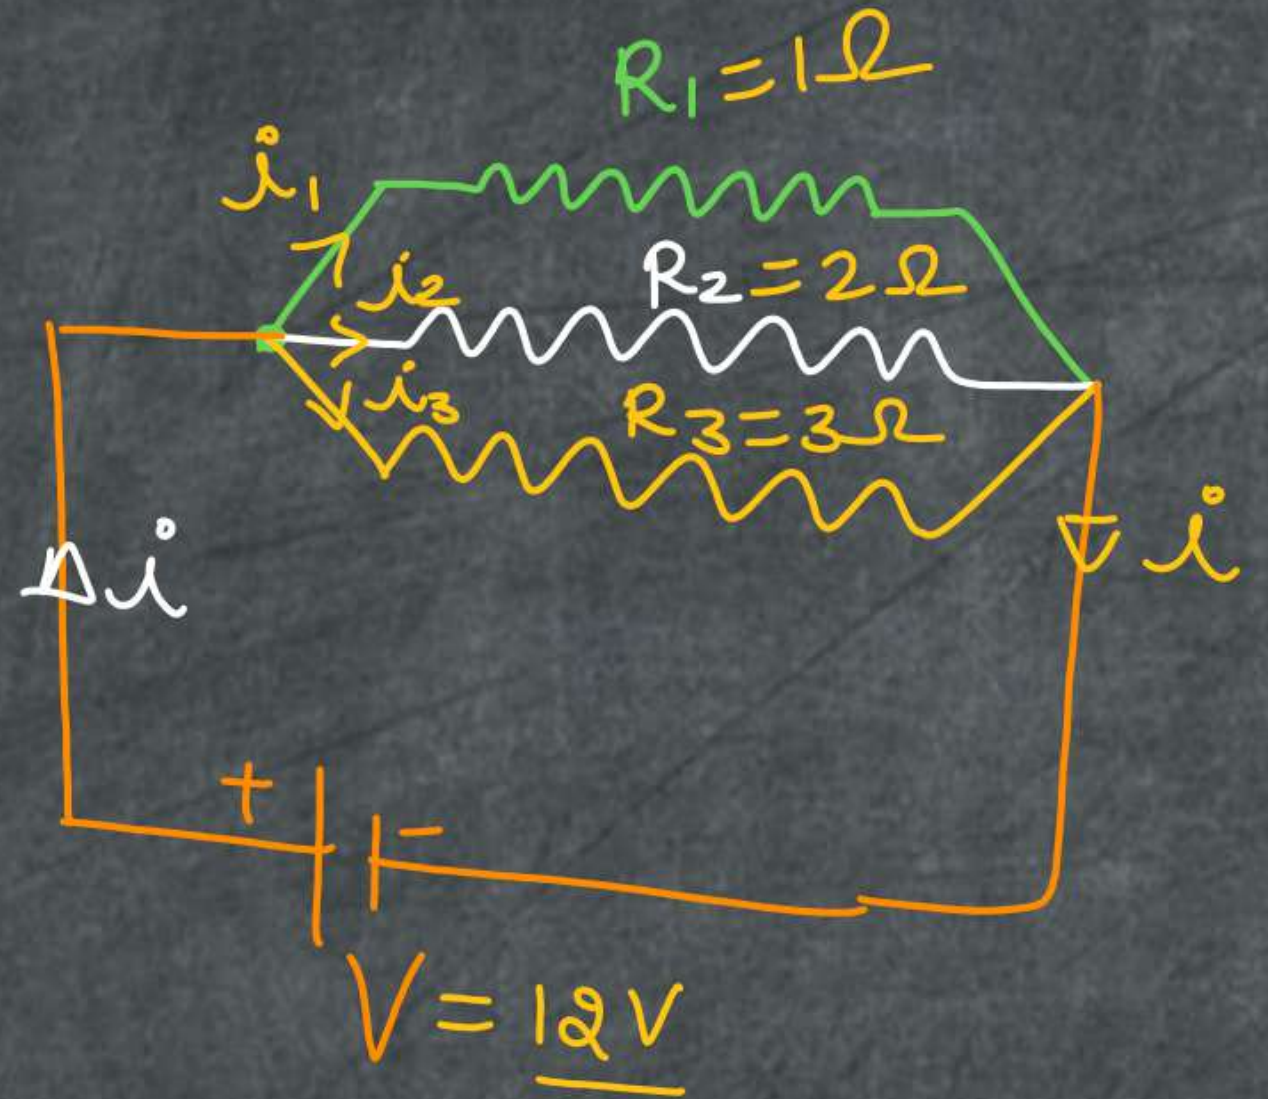 R₁ = 1Ω
i₁
R₂ = 2Ω
i₂
i₃
R₃ = 3Ω
i
i
+
-
V = 12V